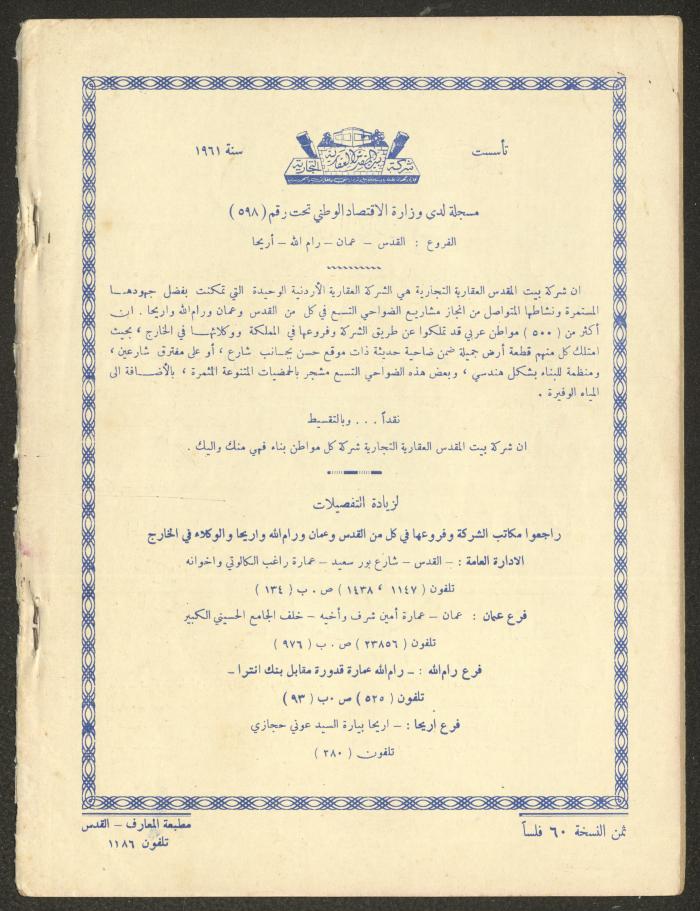 تأسست
سنة ١٩٦١
شركة بيت المقدس العقارية التجارية
مسجلة لدى وزارة الاقتصاد الوطني تحت رقم ( ٥٩٨ )
الفروع : القدس – عمان – رام الله – أريحا
ان شركة بيت المقدس العقارية التجارية هي الشركة العقارية الأردنية الوحيدة التي تمكنت بفضل جهودها
المستمرة ونشاطها المتواصل من انجاز مشاريع الضواحي التسع في كل من القدس وعمان ورام الله واريحا . ان
أكثر من ( ٥٠٠ ) مواطن عربي قد تملكوا عن طريق الشركة وفروعها في المملكة ووكلائها في الخارج ، بحيث
امتلك كل منهم قطعة أرض جميلة ضمن ضاحية حديثة ذات موقع حسن بجانب شارع ، أو على مفترق شارعين ،
ومنظمة للبناء بشكل هندسي ، وبعض هذه الضواحي التسع مشجر بالحمضيات المتنوعة المثمرة ، بالأضافة الى
المياه الوفيرة .
نقداً . . . وبالتقسيط
ان شركة بيت المقدس العقارية التجارية شركة كل مواطن بناء فهي منك واليك .
لزيادة التفصيلات
راجعوا مكاتب الشركة وفروعها في كل من القدس وعمان ورام الله واريحا والوكلاء في الخارج
الادارة العامة : – القدس – شارع بور سعيد – عمارة راغب الكالوتي واخوانه
تلفون ( ١١٤٧ ، ١٤٣٨ ) ص . ب ( ١٣٤ )
فرع عمان : عمان – عمارة أمين شرف وأخيه – خلف الجامع الحسيني الكبير
تلفون ( ٢٣٨٥٦ ) ص . ب ( ٩٧٦ )
فرع رام الله : – رام الله عمارة قدورة مقابل بنك انترا –
تلفون ( ٥٢٥ ) ص . ب ( ٩٣ )
فرع اريحا : – اريحا بيارة السيد عوني حجازي
تلفون ( ٢٨٠ )
ثمن النسخة ٦٠ فلساً
مطبعة المعارف – القدس
تلفون ١١٨٦